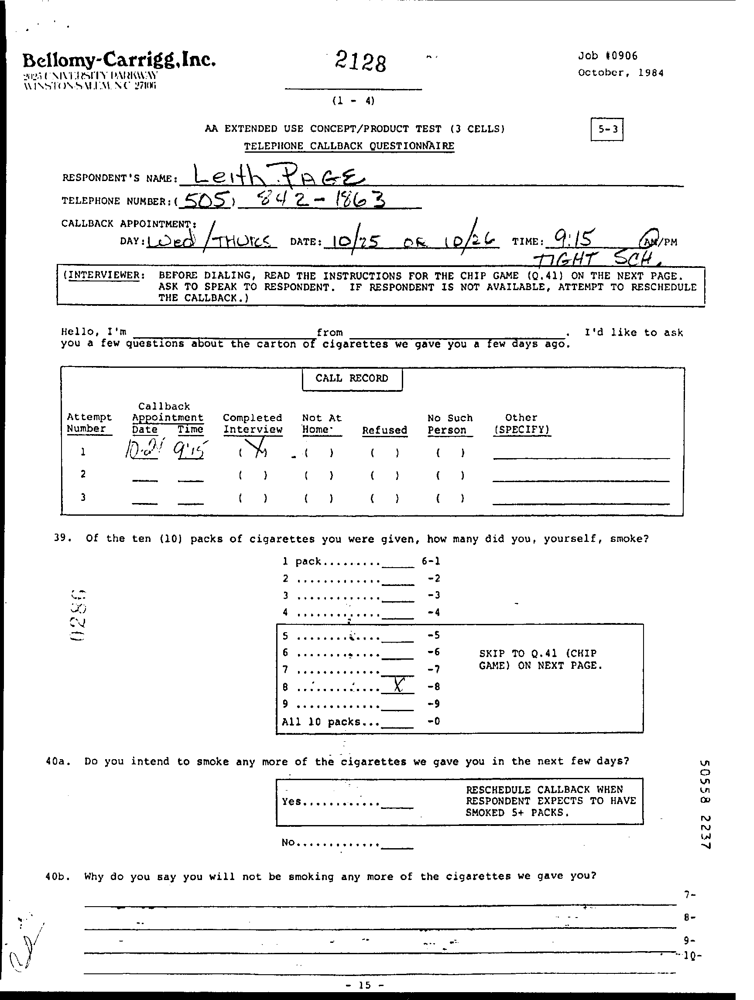 Bellomy-Carrigg, Inc.
2025 UNIVERSITY PARKWAY
WINSTON SALEM, NC 27106
2128
(1 - 4)
Job #0906
October, 1984
AA EXTENDED USE CONCEPT/PRODUCT TEST (3 CELLS)
5-3
TELEPHONE CALLBACK QUESTIONNAIRE
RESPONDENT'S NAME: Leith PAGE
TELEPHONE NUMBER: (505) 842-1863
CALLBACK APPOINTMENT:
DAY: Wed/THURS DATE: 10/25 OR 10/26 TIME: 9:15 AM/PM
TIGHT SCH.
(INTERVIEWER: BEFORE DIALING, READ THE INSTRUCTIONS FOR THE CHIP GAME (Q.41) ON THE NEXT PAGE.
ASK TO SPEAK TO RESPONDENT. IF RESPONDENT IS NOT AVAILABLE, ATTEMPT TO RESCHEDULE
THE CALLBACK.)
Hello, I'm ____ from ____. I'd like to ask
you a few questions about the carton of cigarettes we gave you a few days ago.
CALL RECORD
Attempt Number Callback Appointment Date Time Completed Interview Not At Home Refused No Such Person Other (SPECIFY)
1 9:15 (X) ( ) ( ) ( )
2 ( ) ( ) ( ) ( )
3 ( ) ( ) ( ) ( )
39. Of the ten (10) packs of cigarettes you were given, how many did you, yourself, smoke?
1 pack.........____ 6-1
2 .............____ -2
3 .............____ -3
4 .............____ -4
5 .............____ -5
6 .............____ -6 SKIP TO Q.41 (CHIP
7 .............____ -7 GAME) ON NEXT PAGE.
8 ............. X -8
9 .............____ -9
All 10 packs...____ -0
0286
40a. Do you intend to smoke any more of the cigarettes we gave you in the next few days?
RESCHEDULE CALLBACK WHEN
Yes............____ RESPONDENT EXPECTS TO HAVE
SMOKED 5+ PACKS.
No.............____
50558 2237
40b. Why do you say you will not be smoking any more of the cigarettes we gave you?
7-
8-
9-
10-
- 15 -